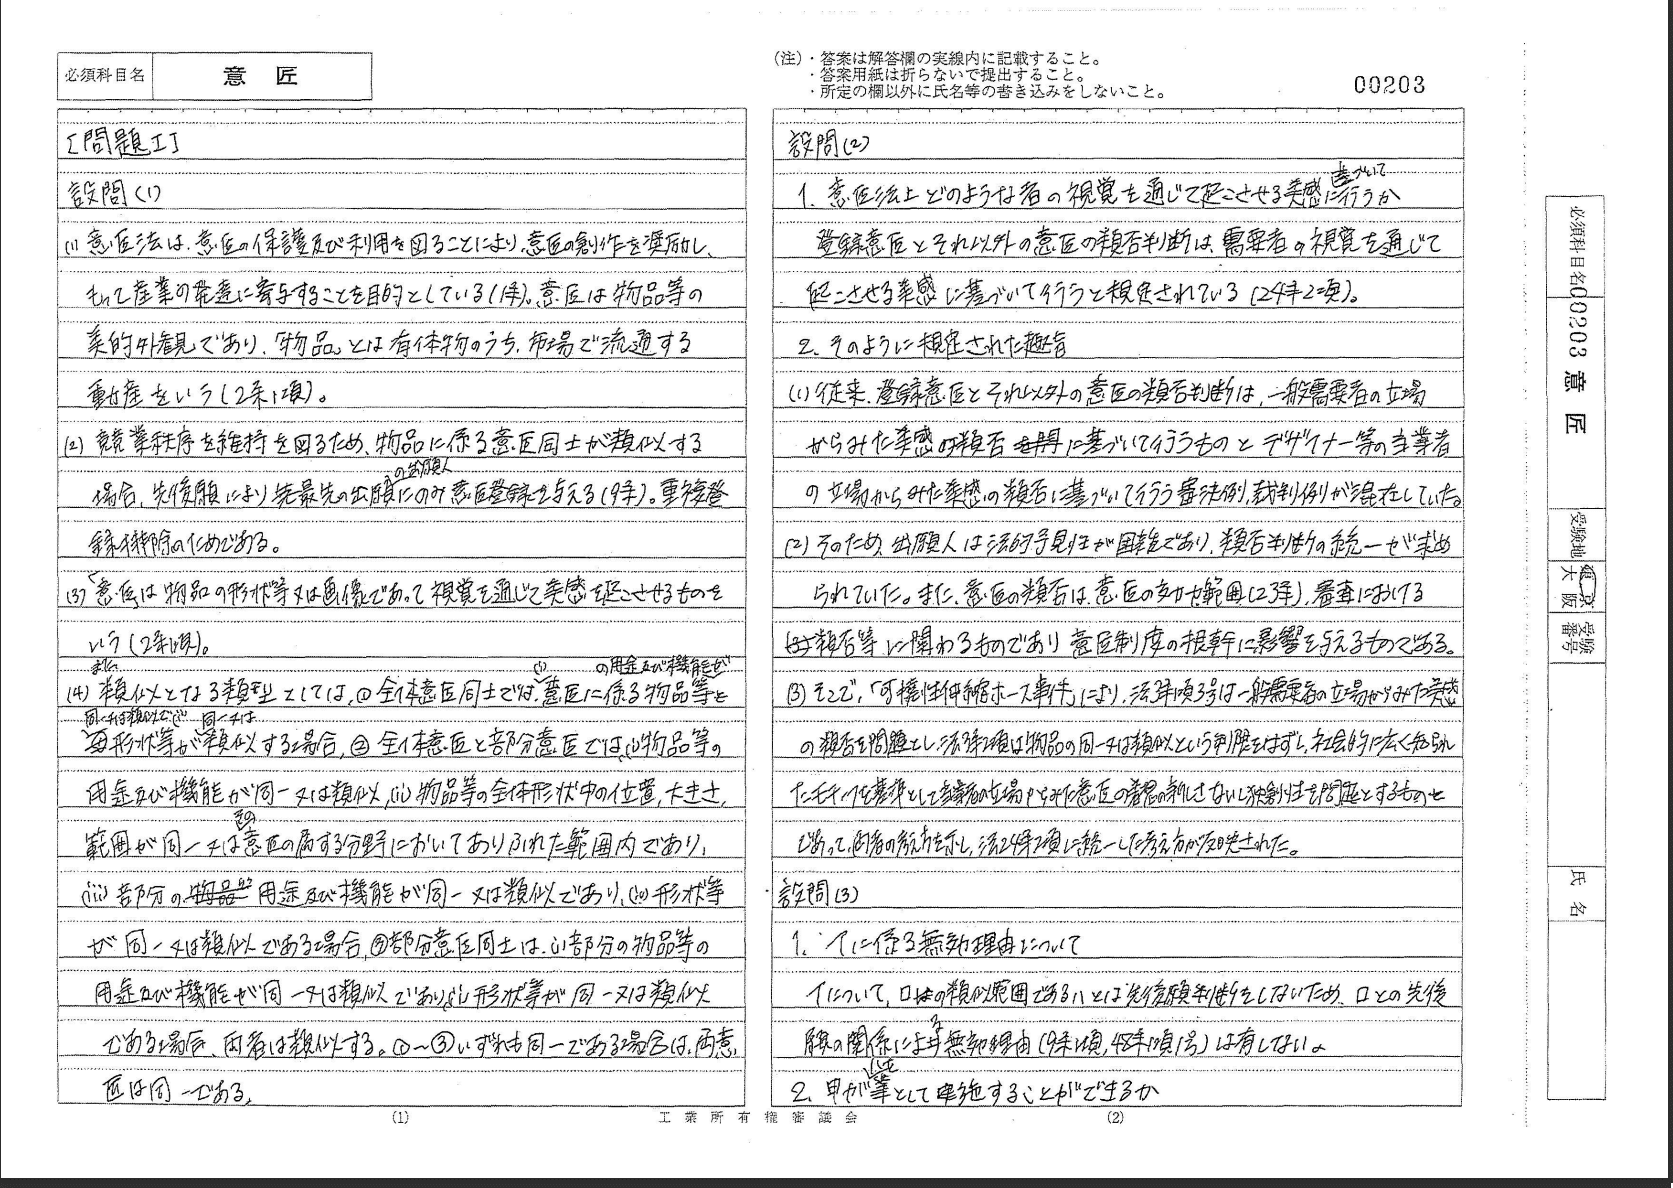 必須科目名 意 匠
(注)・答案は解答欄の実線内に記載すること。
・答案用紙は折らないで提出すること。
・所定の欄以外に氏名等の書き込みをしないこと。
00203
[問題I]
設問(1)
(1) 意匠法は、意匠の保護及び利用を図ることにより、意匠の創作を奨励し、
もって産業の発達に寄与することを目的としている(1条)。意匠は物品等の
美的外観であり、「物品」とは有体物のうち、市場で流通する
動産をいう(2条1項)。
(2) 競業秩序を維持を図るため、物品に係る意匠同士が類似する
場合、先後願により最先の出願の出願人にのみ意匠登録を与える(9条)。重複登
録排除のためである。
(3) 「意匠」は物品の形状等又は画像であって視覚を通じて美感を起こさせるものを
いう(2条1項)。
(4) また、類似となる類型としては、①全体意匠同士では、(i)意匠に係る物品等の用途及び機能が
同一又は類似で(ii)形状等が同一又は類似する場合、②全体意匠と部分意匠では(i)物品等の
用途及び機能が同一又は類似、(ii)物品等の全体形状中の位置、大きさ、
範囲が同一又はその意匠の属する分野においてありふれた範囲内であり、
(iii)部分の用途及び機能が同一又は類似であり、(iv)形状等
が同一又は類似である場合、③部分意匠同士は、(i)部分の物品等の
用途及び機能が同一又は類似であり(ii)形状等が同一又は類似
である場合、両者は類似する。①〜③いずれも同一である場合は、両意
匠は同一である。
(1)
設問(2)
1. 意匠法上どのような者の視覚を通じて起こさせる美感に基づいて行うか
登録意匠とそれ以外の意匠の類否判断は、需要者の視覚を通じて
起こさせる美感に基づいて行うと規定されている(24条2項)。
2. そのように規定された趣旨
(1) 従来、登録意匠とそれ以外の意匠の類否判断は、一般需要者の立場
からみた美感の類否に基づいて行うものとデザイナー等の当業者
の立場からみた美感の類否に基づいて行う審決例、裁判例が混在していた。
(2) そのため、出願人は法的予見性が困難であり、類否判断の統一が求め
られていた。また、意匠の類否は、意匠の効力範囲(23条)、審査における
類否等に関わるものであり意匠制度の根幹に影響を与えるものである。
(3) そこで、「可撓性伸縮ホース事件」により、法3条1項3号は一般需要者の立場からみた美感
の類否を問題とし、法3条2項は物品の同一又は類似という制限をはずし、社会的に広く知られ
たモチーフを基準として当業者の立場からみた意匠の着想の新しさないし独創性を問題とするもの
であって、両者の考え方を示し、法24条2項に統一した考え方が反映された。
設問(3)
1. イに係る無効理由について
イについて、ロの類似範囲であるハとは先後願判断をしないため、ロとの先後
願の関係による無効理由(9条1項、48条1項1号)は有しない。
2. 甲が業としてハを実施することができるか
(2)
工業所有権審議会
必須科目名 00203 意 匠
受験地 東京 大阪
受験番号
氏 名